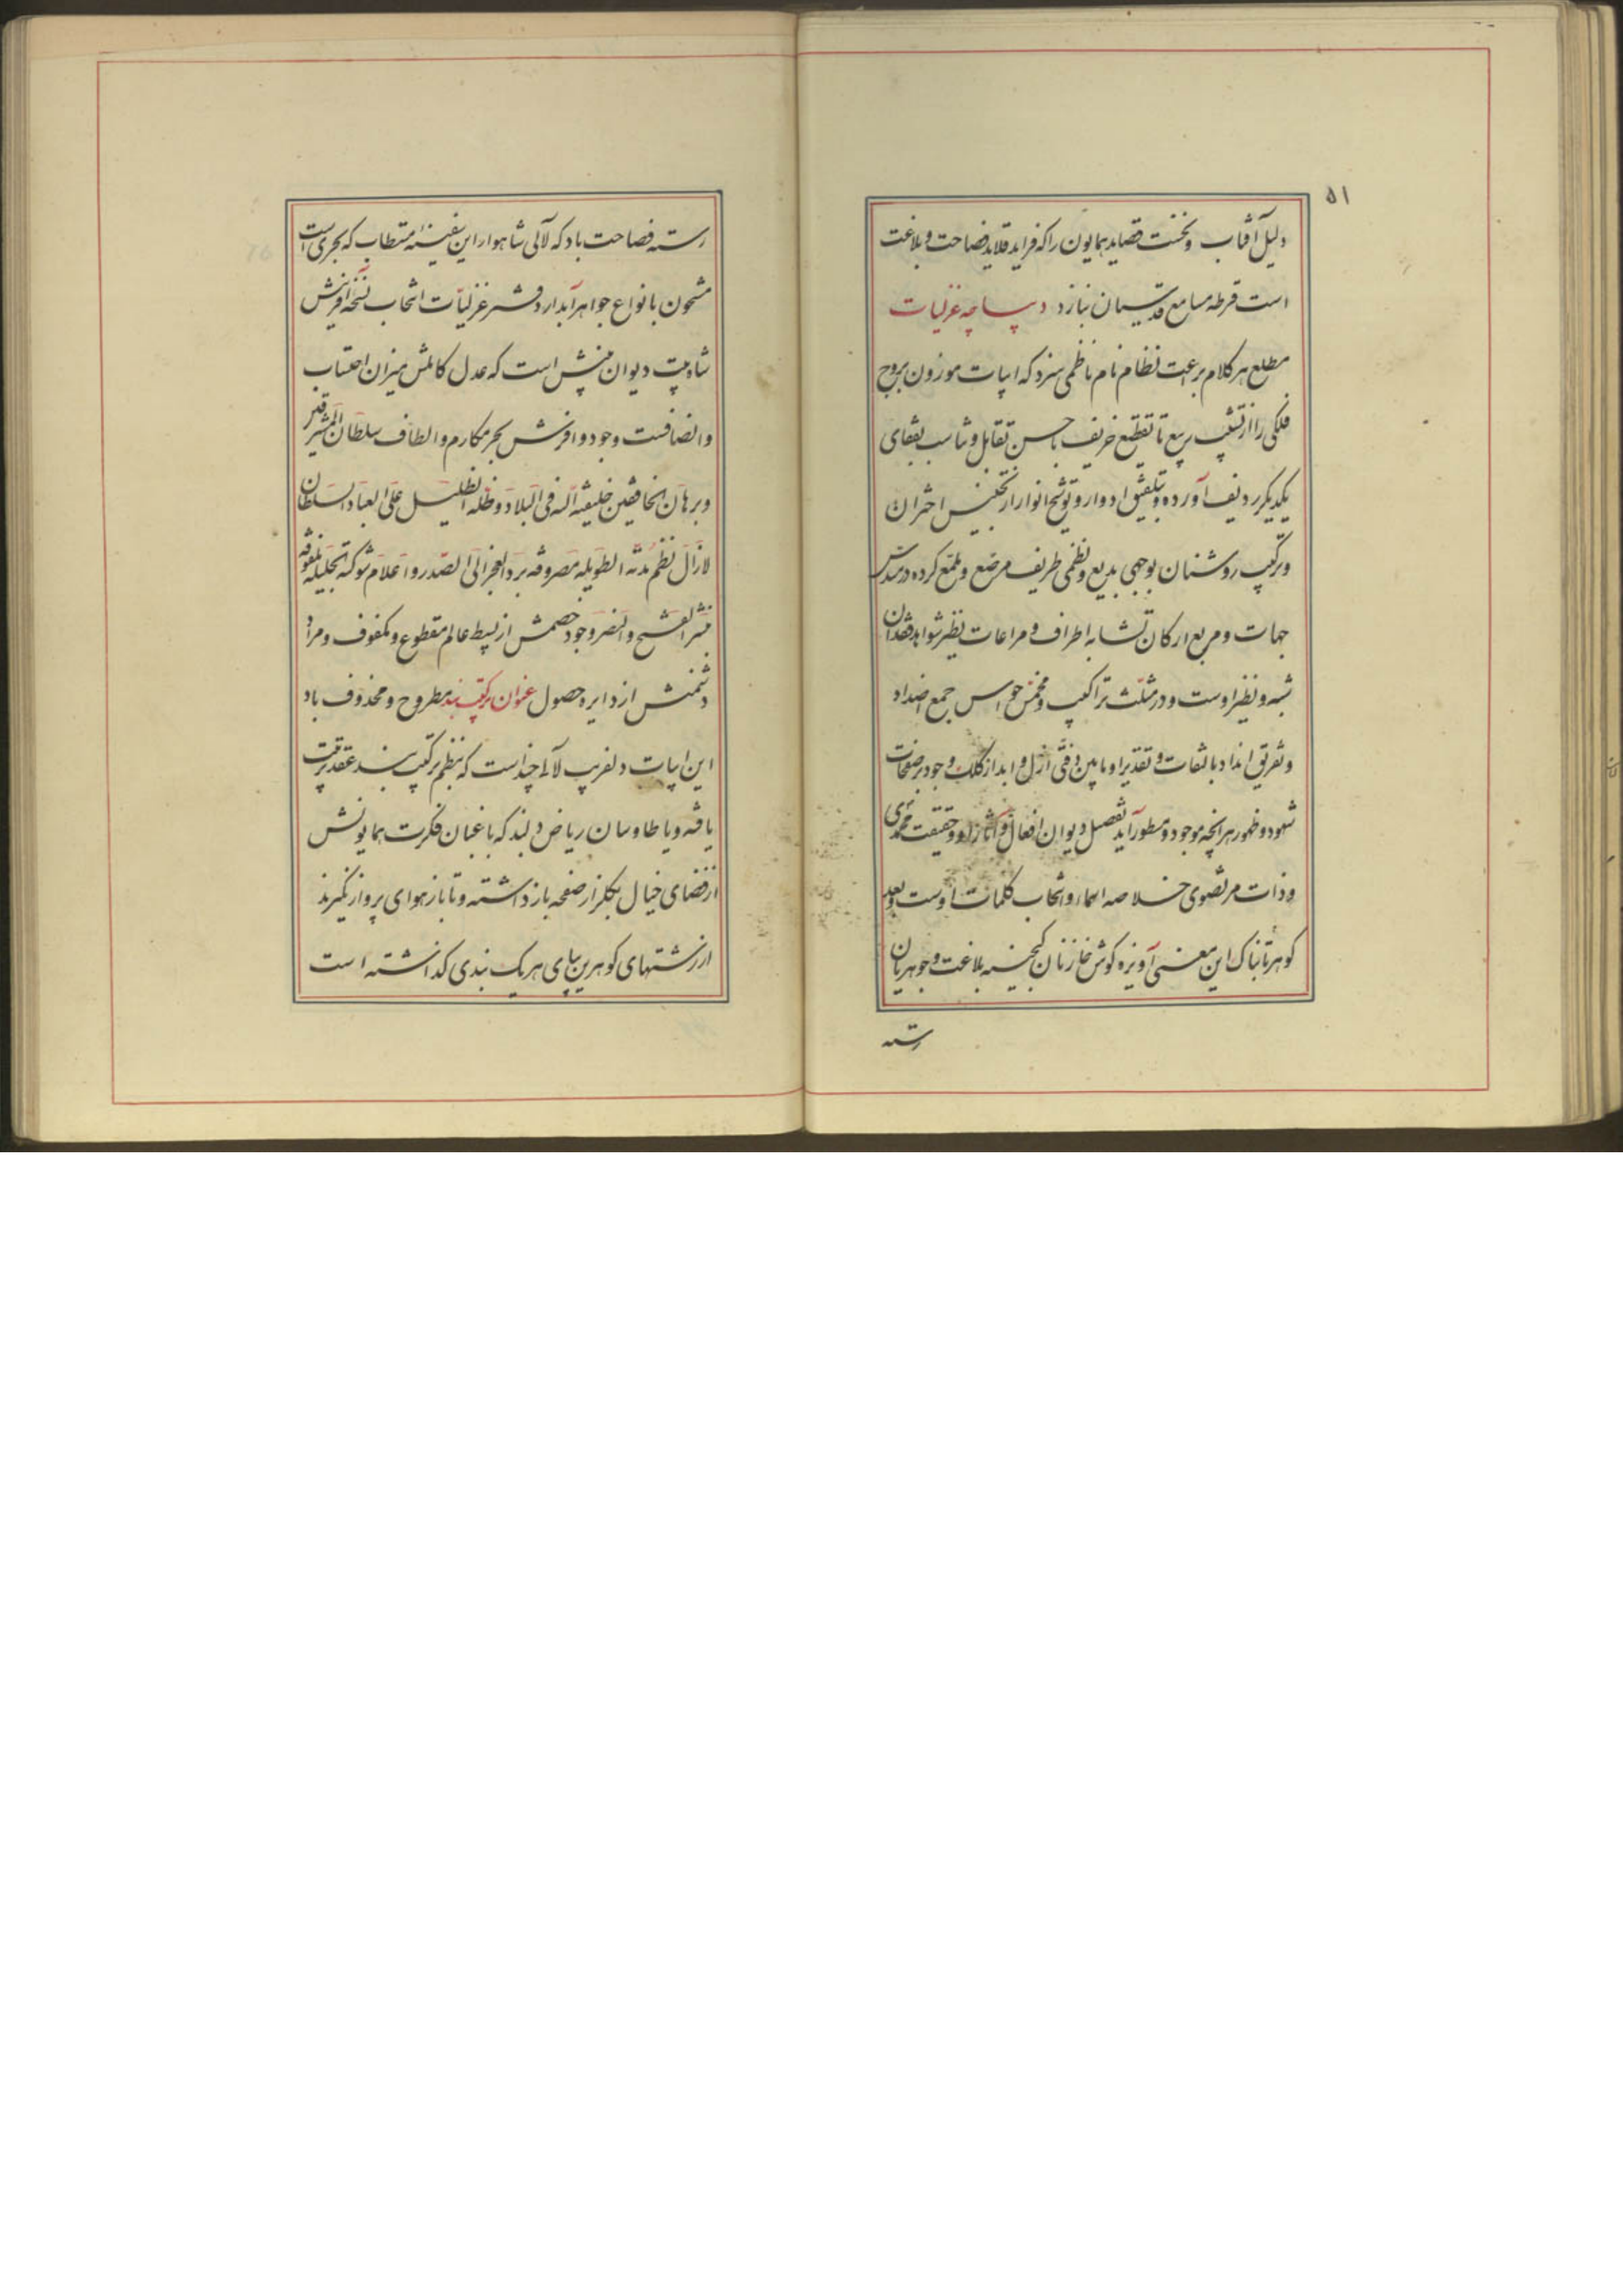 ۵۱
دلیل آفتاب و نخست قصاید همایون را که فراید قلاید فصاحت و بلاغت
است قرطه مسامع قدسیان نیازد دیباچه غزلیات
مطلع هر کلام براعت نظام نام ناظمی سزد که ابیات موزون بروج
فلکی را از تشبیب ربیع تا تقطیع خریف با حسن تقابل و تناسب بقفای
یکدیگر ردیف آورده و بتلفیق ادوار و توشیح انوار از تجنیس اختران
و ترکیب روشنان بوجهی بدیع و نظمی ظریف مرصع و ملمع کرده در مسدس
جهات و مربع ارکان تشابه اطراف و مراعات نظیر شواهد فقدان
شبه و نظیر اوست و در مثلث تراکیب و مخمس حواس جمع اضداد
و تفریق انداد بالتفات و تقدیر او مابین دفتی ازل و ابد از کلک وجود بر صفحات
شهود و ظهور هر آنچه موجود و مسطور آید تفصیل دیوان افعال و آثار او و حقیقت محمدی
و ذات مرتضوی خلاصه اسماء و انتخاب کلمات اوست و بعد
گوهر تابناک این معنی آویزه گوش خازنان گنجینه بلاغت و جوهریان
رسته
رسته فصاحت باد که لآلی شاهوار این سفینه مستطاب که بحری است
مشحون بانواع جواهر آبدار دفتر غزلیات انتخاب نسخه آفرینش
شاه بیت دیوان بینش است که عدل کاملش میزان احتساب
و انصافست و جود وافرش بحر مکارم و الطاف سلطان المشرقین
و برهان الخافقین خلیفة الله فی البلاد و ظله الظلیل علی العباد السلطان
لازال نظم مدته الطویله مصروفه برد العجز الی الصدر و اعلام شوکته الجلیله ملفوفه
بنشر الفتح و النصر وجود خصمش از بسیط عالم مقطوع و مکفوف و مراد
دشمنش از دایره حصول عنوان ترکیب بند مطروح و محذوف باد
این ابیات دلفریب لآلی چند است که بنظم ترکیب بند عقد ترتیب
یافته و یا طاوسان ریاض دلبند که باغبان فکرت همایونش
از فضای خیال بگلزار صفحه باز داشته و تا باز هوای پرواز نگیرند
از رشتهای گوهرین بپای هر یک بندی گذاشته است